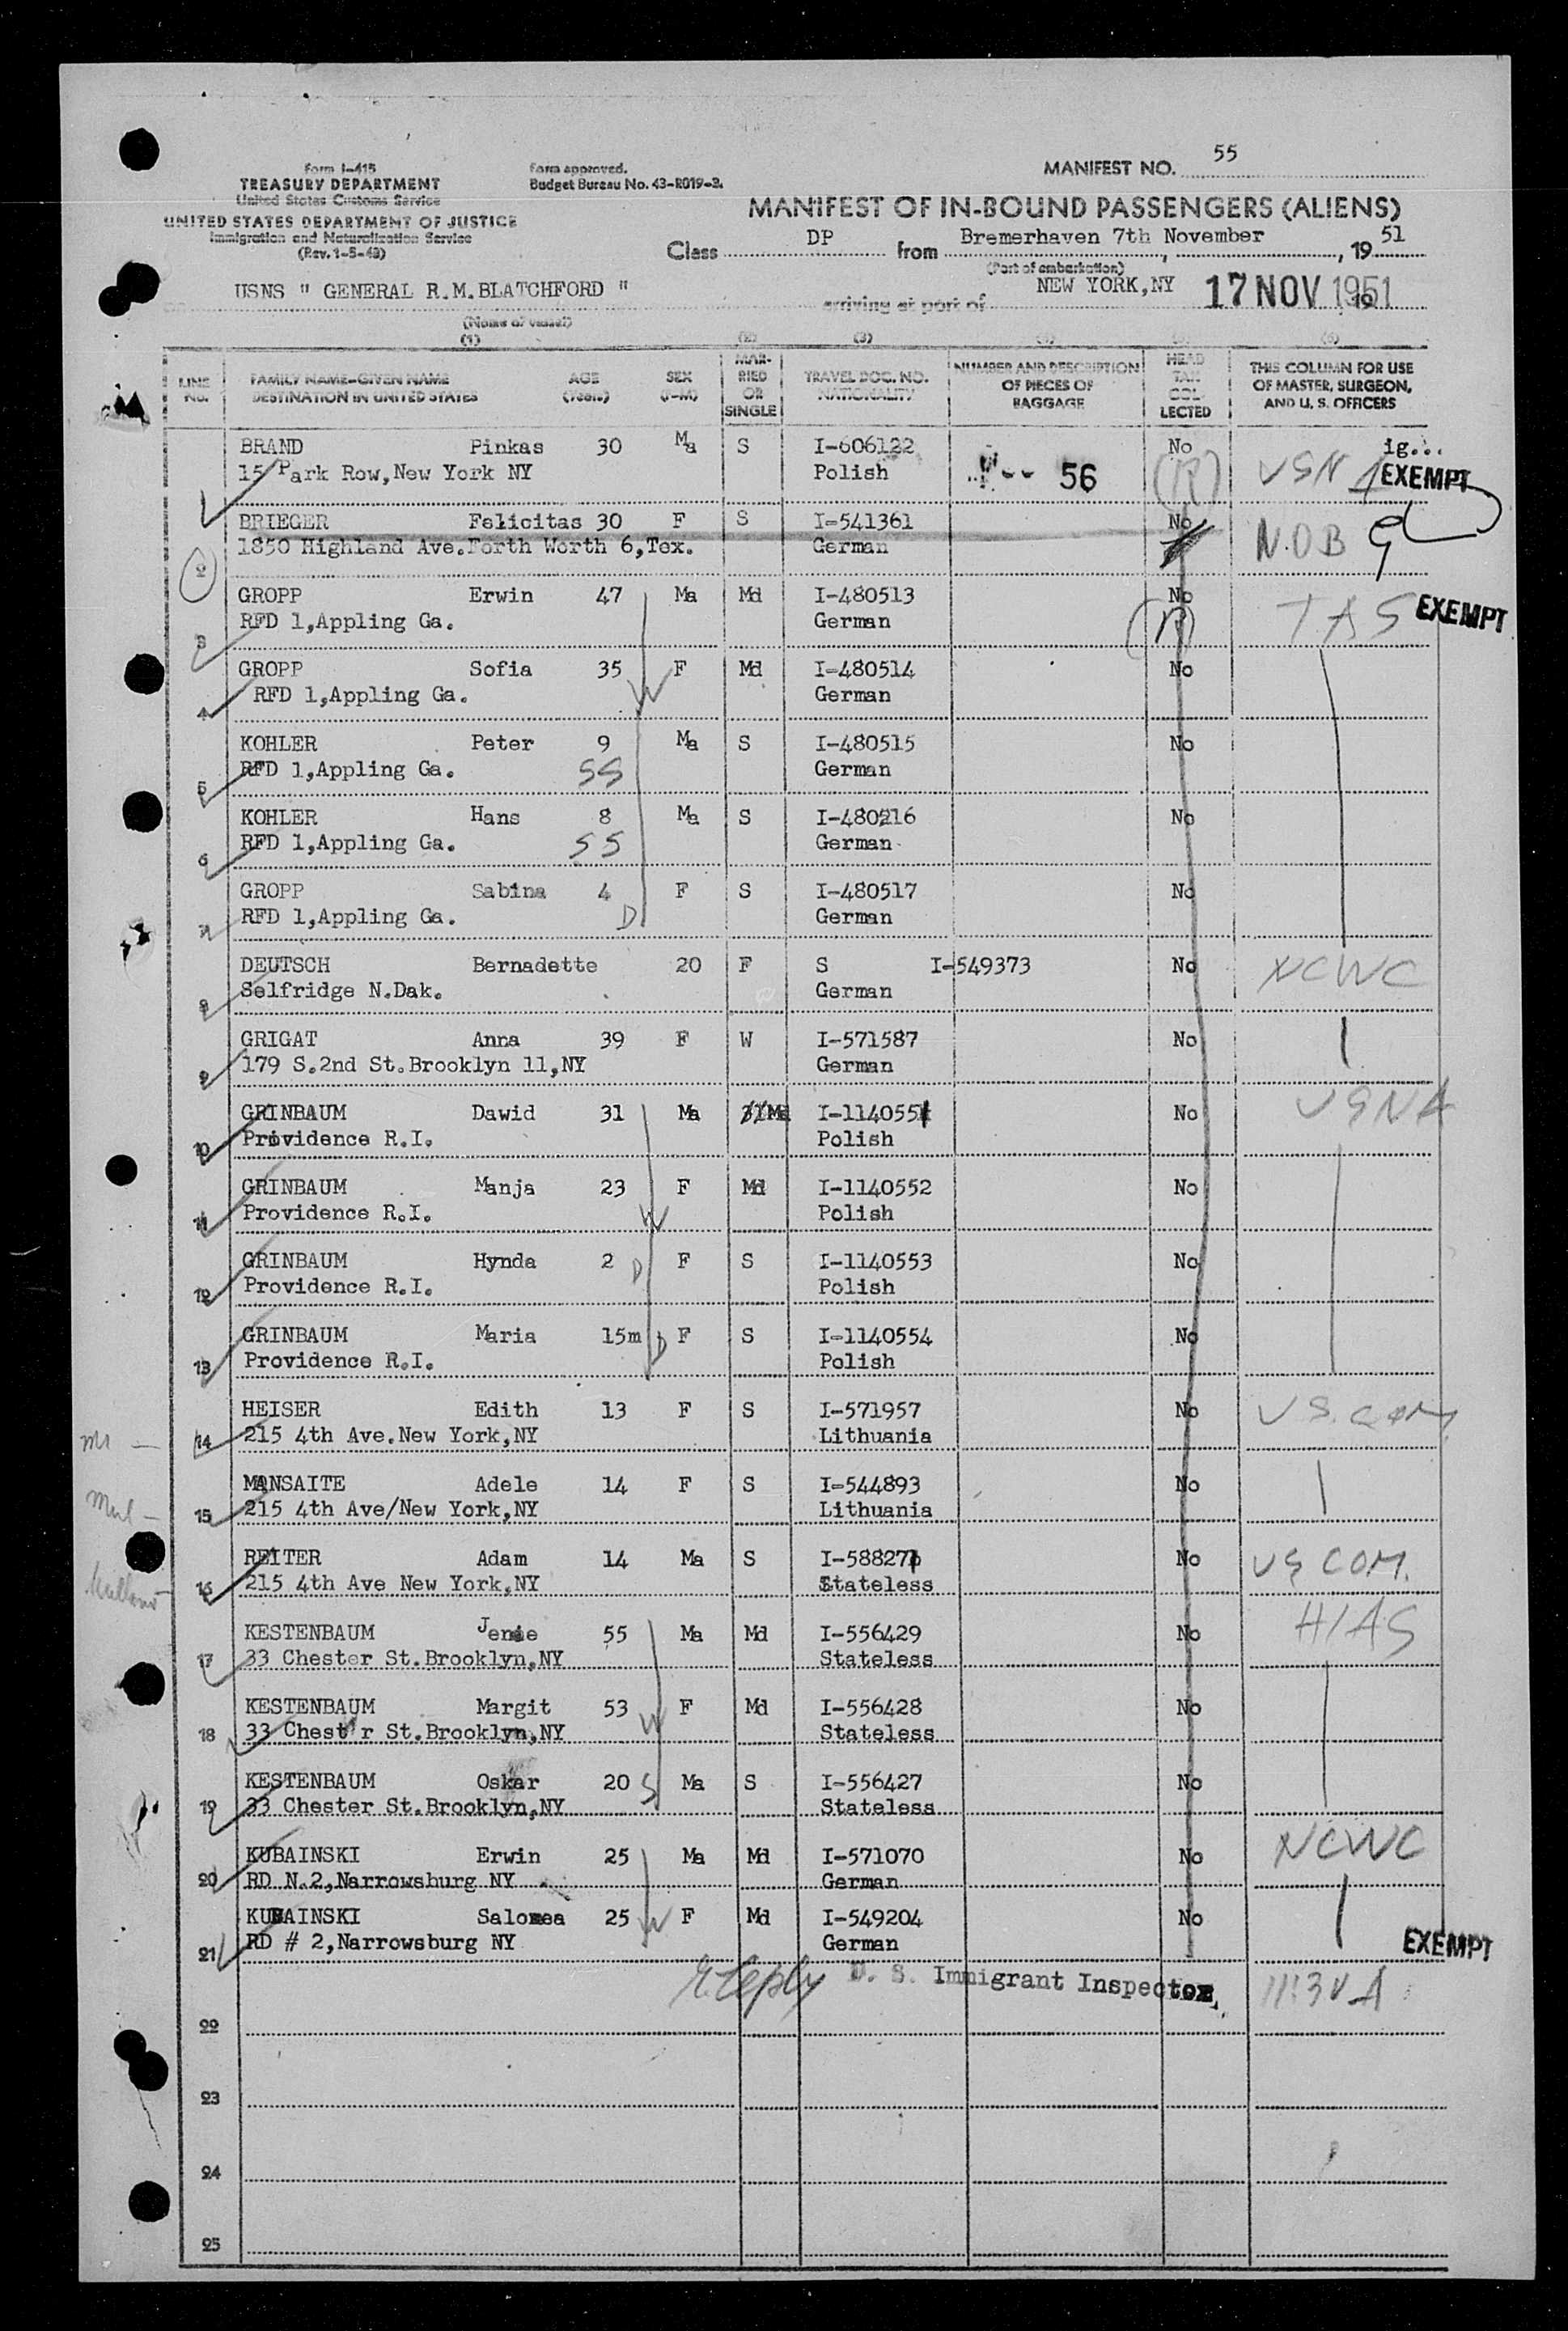 Form I-415
TREASURY DEPARTMENT
United States Customs Service
UNITED STATES DEPARTMENT OF JUSTICE
Immigration and Naturalization Service
(Rev. 1-5-48)
Form approved.
Budget Bureau No. 43-R019-3.
MANIFEST NO. 55
MANIFEST OF IN-BOUND PASSENGERS (ALIENS)
Class DP from Bremerhaven 7th November, 1951
(Port of embarkation)
USNS " GENERAL R.M.BLATCHFORD " arriving at port of NEW YORK,NY 17 NOV 1951
(Name of vessel)
(1) (2) (3) (4) (5) (6)
LINE No. FAMILY NAME-GIVEN NAME DESTINATION IN UNITED STATES AGE (Years) SEX (F-M) MARRIED OR SINGLE TRAVEL DOC. NO. NATIONALITY NUMBER AND DESCRIPTION OF PIECES OF BAGGAGE HEAD TAX COLLECTED THIS COLUMN FOR USE OF MASTER, SURGEON, AND U. S. OFFICERS
BRAND Pinkas 30 Ma S I-606122 No
15 Park Row,New York NY Polish 56 (R) USNA EXEMPT
BRIEGER Felicitas 30 F S I-541361 No
2 1850 Highland Ave.Forth Worth 6,Tex. German N.O.B
GROPP Erwin 47 Ma Md I-480513 No
3 RFD 1,Appling Ga. German (R) TAS EXEMPT
GROPP Sofia 35 W F Md I-480514 No
4 RFD 1,Appling Ga. German
KOHLER Peter 9 Ma S I-480515 No
5 RFD 1,Appling Ga. SS German
KOHLER Hans 8 Ma S I-480216 No
6 RFD 1,Appling Ga. SS German
GROPP Sabina 4 F S I-480517 No
7 RFD 1,Appling Ga. D German
DEUTSCH Bernadette 20 F S I-549373 No NCWC
8 Selfridge N.Dak. German
GRIGAT Anna 39 F W I-571587 No
9 179 S.2nd St.Brooklyn 11,NY German
GRINBAUM Dawid 31 Ma Md I-1140551 No USNA
10 Providence R.I. Polish
GRINBAUM Manja 23 F Md I-1140552 No
11 Providence R.I. W Polish
GRINBAUM Hynda 2 D F S I-1140553 No
12 Providence R.I. Polish
GRINBAUM Maria 15m D F S I-1140554 No
13 Providence R.I. Polish
HEISER Edith 13 F S I-571957 No US.COM
14 215 4th Ave.New York,NY Lithuania
MANSAITE Adele 14 F S I-544893 No
15 215 4th Ave/New York,NY Lithuania
REITER Adam 14 Ma S No US COM.
16 215 4th Ave New York,NY Stateless
KESTENBAUM 55 Ma Md I-556429 No HIAS
17 33 Chester St.Brooklyn,NY Stateless
KESTENBAUM Margit 53 W F Md I-556428 No
18 33 Chest r St.Brooklyn,NY Stateless
KESTENBAUM Oskar 20 S Ma S I-556427 No
19 33 Chester St.Brooklyn,NY Stateless
KUBAINSKI Erwin 25 Ma Md I-571070 No NCWC
20 RD N.2,Narrowsburg NY German
KUBAINSKI Salomea 25 W F Md I-549204 No
21 RD # 2,Narrowsburg NY German EXEMPT
U. S. Immigrant Inspector
22
23
24
25